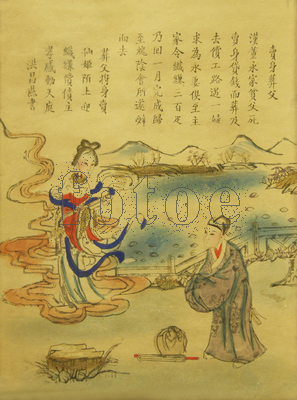 賣身葬父
漢董永家貧父死
賣身貸錢而葬及
去償工路遇一婦
求為永妻俱至主
家令織縑三百疋
乃回一月完成歸
至槐陰會所遂辭
而去
葬父將身賣
仙姬陌上迎
織縑償債主
孝感動天庭
洪昌燕書
fotoe